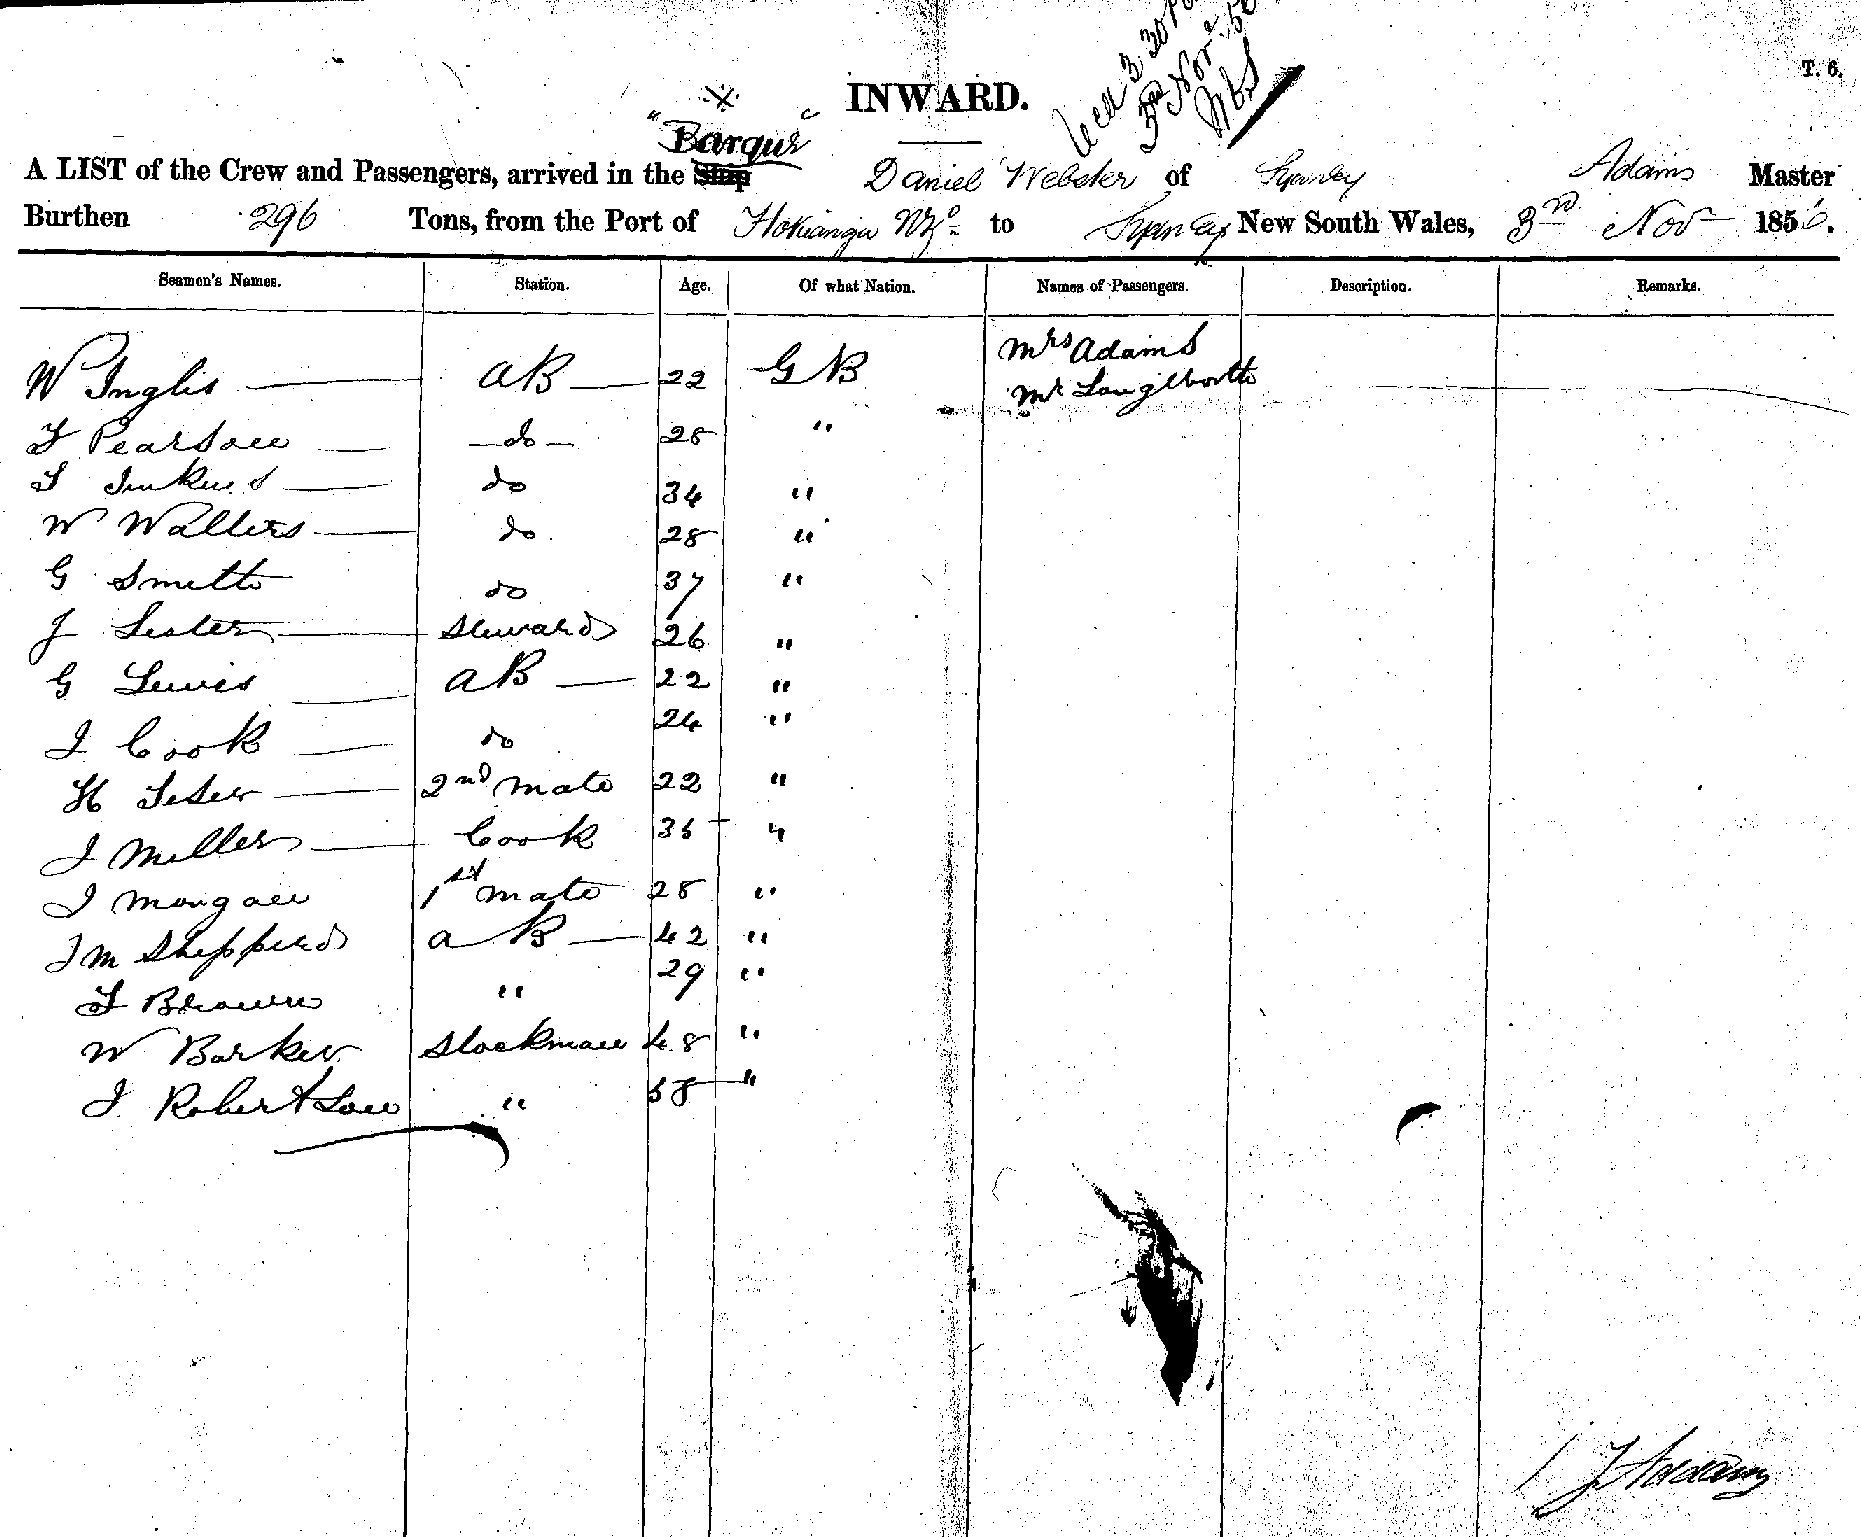 T. 6.
INWARD.
3 30
3rd Nov
"Barque"
A LIST of the Crew and Passengers, arrived in the Ship Daniel Webster of Sydney Adams Master
Burthen 296 Tons, from the Port of Hokianga NZd to Sydney New South Wales, 3rd Novr 1856.
Seamen's Names. Station. Age. Of what Nation. Names of Passengers. Description. Remarks.
Mrs Adams
W Inglis AB 22 GB Mr Langilworth
T Pearson do 28 "
T Jenkins do 34 "
W Walters do 28 "
G Smith do 37 "
J Lester Steward 26 "
G Lewis AB 22 "
J Cook do 24 "
H 2nd mate 22 "
J Miller Cook 36 "
J Morgan 1st mate 28 "
J M Shepperd a B 42 "
T Brown " 29 "
W Barker Stockman 48 "
J Robertson " 58 "
J Adams